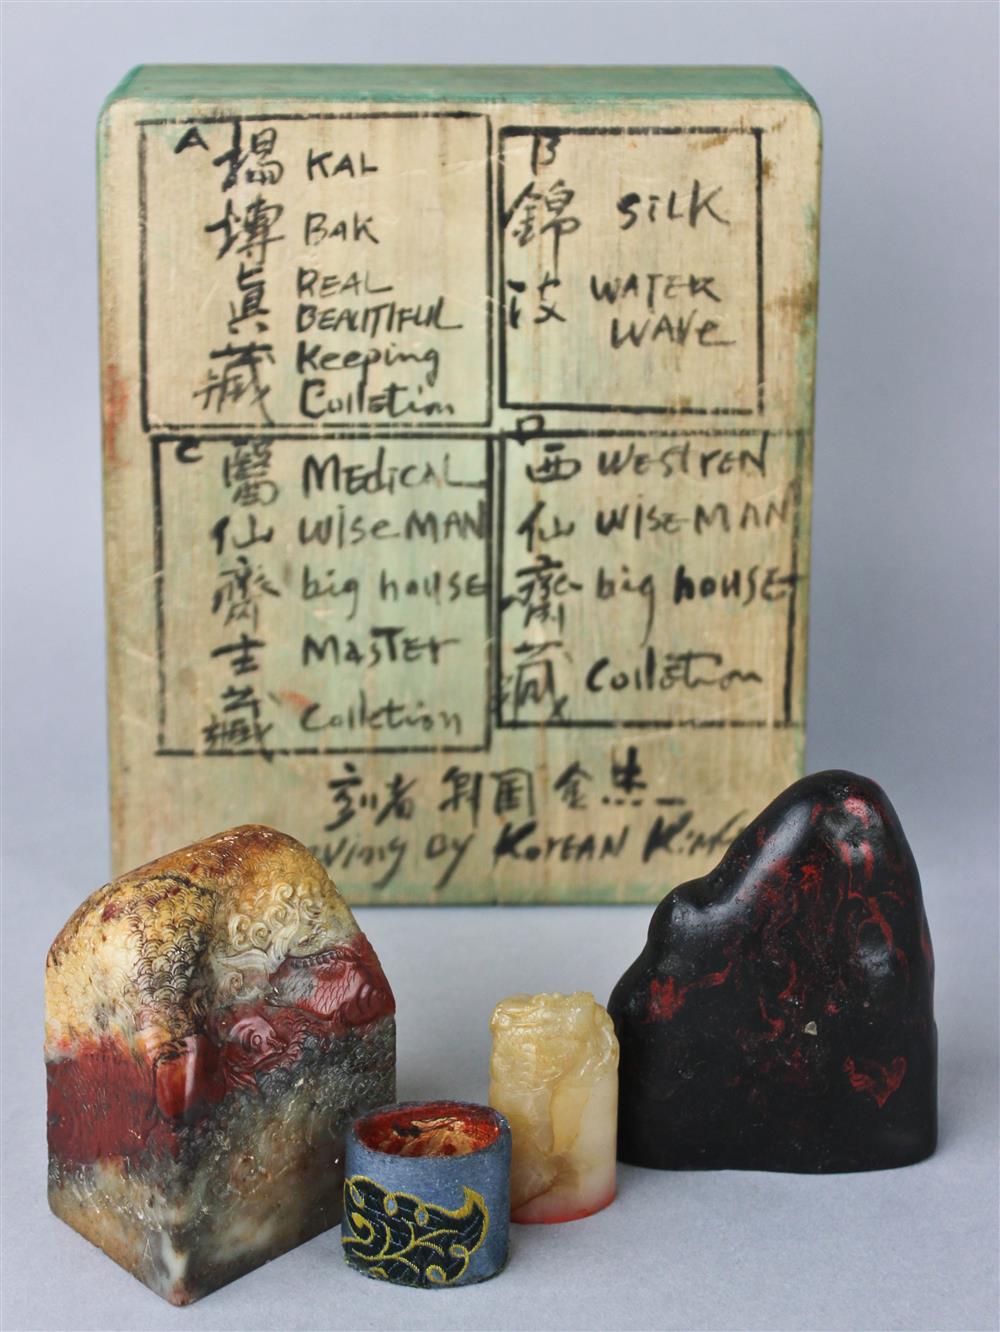 A
楊 KAL
博 BAK
眞 REAL
BEAUTIFUL
藏 Keeping
Colletion
B
錦 SiLK
波 WATER
WAVe
C
醫 MediCAL
仙 WiSe MAN
齋 big house
主 MASTer
藏 Colletion
D
西 WESTREN
仙 WISE-MAN
齋 big house
藏 Colletion
刻者 韓国 金
by KOREAN